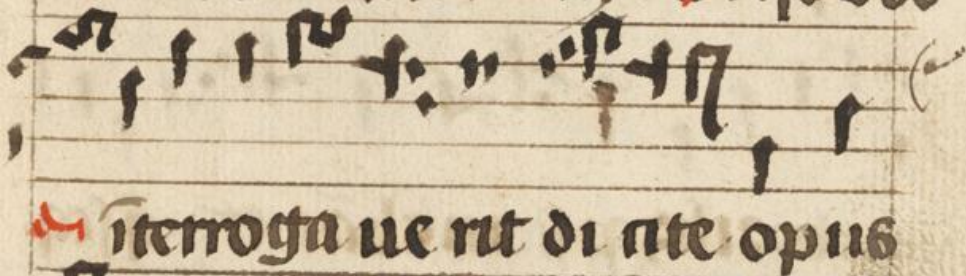 īterroga ue rit di cite opus